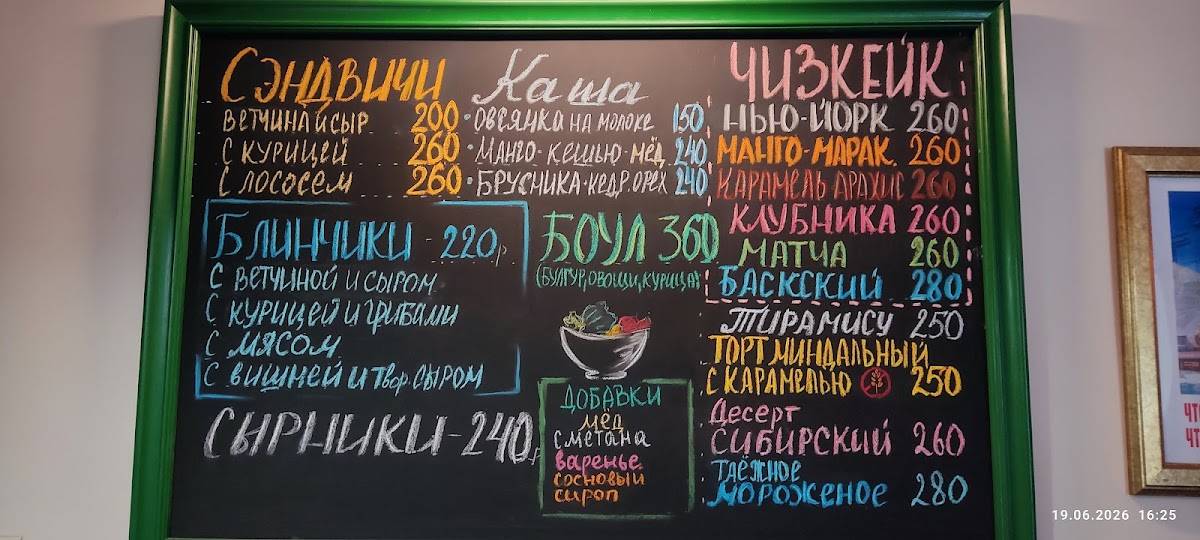 СЭНДВИЧИ
ВЕТЧИНА И СЫР 200
С КУРИЦЕЙ 260
С ЛОСОСЕМ 260
Каша
• ОВСЯНКА НА МОЛОКЕ 150
• МАНГО-КЕШЬЮ-МЁД 240
• БРУСНИКА-КЕДР.ОРЕХ 240
БЛИНЧИКИ - 220р
С ВЕТЧИНОЙ И СЫРОМ
С КУРИЦЕЙ И ГРИБАМИ
С МЯСОМ
С ВИШНЕЙ И ТВОР.СЫРОМ
СЫРНИКИ-240р
БОУЛ 360
(БУЛГУР,ОВОЩИ,КУРИЦА)
ДОБАВКИ
МЁД
СМЕТАНА
ВАРЕНЬЕ
СОСНОВЫЙ
СИРОП
ЧИЗКЕЙК
НЬЮ-ЙОРК 260
МАНГО-МАРАК. 260
КАРАМЕЛЬ-АРАХИС 260
КЛУБНИКА 260
МАТЧА 260
БАСКСКИЙ 280
ТИРАМИСУ 250
ТОРТ МИНДАЛЬНЫЙ
С КАРАМЕЛЬЮ 250
Десерт
СИБИРСКИЙ 260
ТАЁЖНОЕ
МОРОЖЕНОЕ 280
19.06.2026 16:25